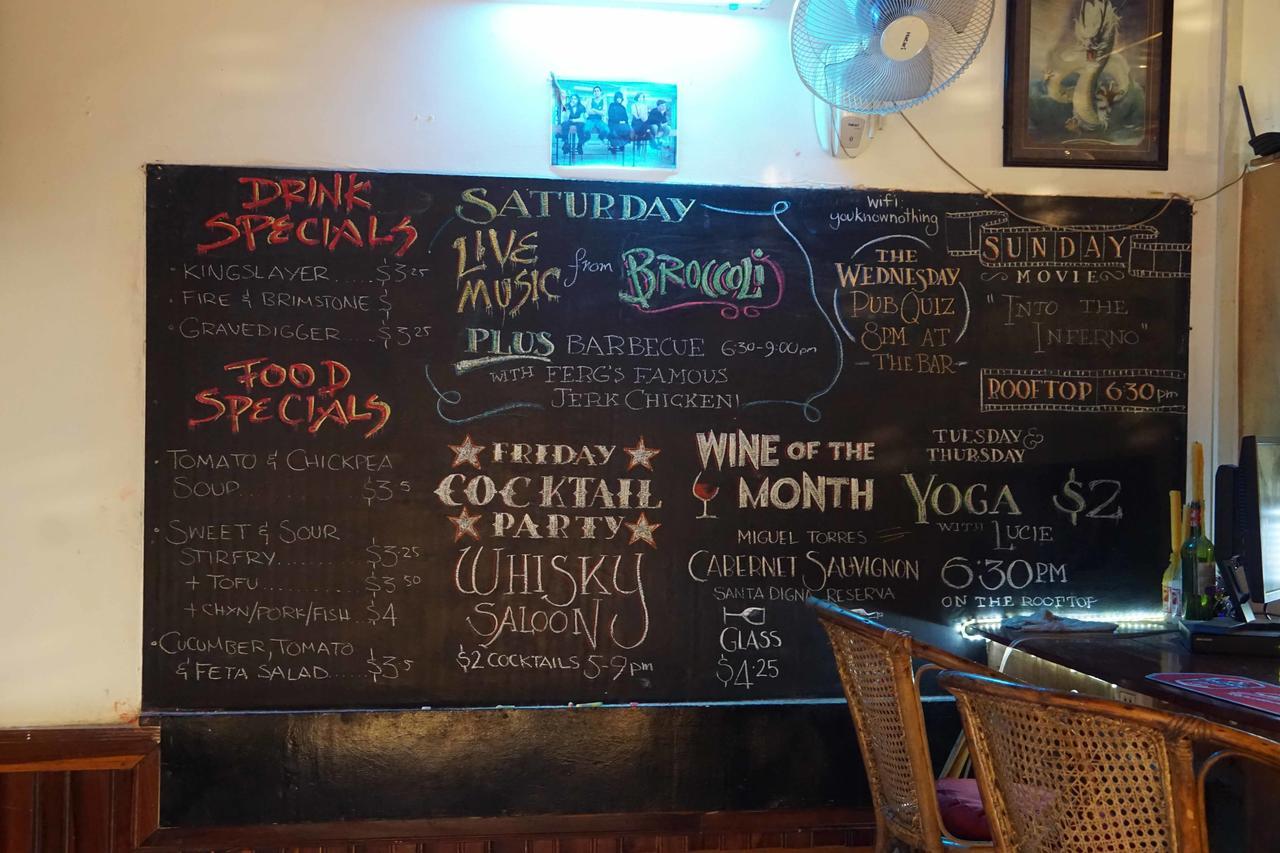 DRINK
SPECIALS
· KINGSLAYER....$3 25
· FIRE & BRIMSTONE $
· GRAVEDIGGER....$3.25
FOOD
SPECIALS
· TOMATO & CHICKPEA
SOUP..............$3 5
· SWEET & SOUR
STIRFRY...........$3.25
+ TOFU............$3 50
+ CHYN/PORK/FISH...$4
· CUCUMBER, TOMATO
& FETA SALAD.....$3 5
SATURDAY
LIVE
MUSIC from BROCCOLI
PLUS BARBECUE 6:30-9:00pm
WITH FERG'S FAMOUS
JERK CHICKEN!
FRIDAY
COCKTAIL
PARTY
WHISKY
SALOON
$2 COCKTAILS 5-9pm
WINE OF THE
MONTH
MIGUEL TORRES
CABERNET SAUVIGNON
SANTA DIGNA RESERVA
GLASS
$4.25
wifi
youknownothing
THE
WEDNESDAY
PUB QUIZ
8PM AT
-THE BAR-
SUNDAY
MOVIE
"INTO THE
INFERNO"
ROOFTOP 6:30pm
TUESDAY &
THURSDAY
YOGA $2
WITH LUCIE
6:30PM
ON THE ROOFTOP